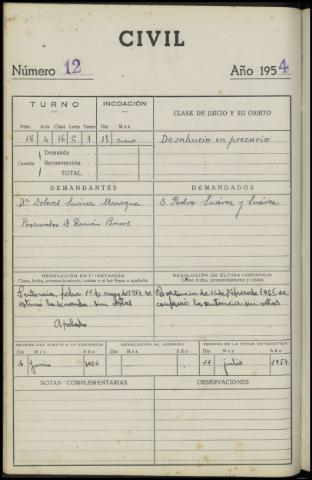 CIVIL
Número 12 Año 1954
TURNO INCOACIÓN CLASE DE JUICIO Y SU OBJETO
Núm. Art. Clase Letra Turno Día Mes
18 4 16 C 1 18 enero Desahucio en precario
Cuantía Demanda
Reconvención.
TOTAL
DEMANDANTES DEMANDADOS
Dª Dolores Suárez
D. Pedro Suárez y Suárez
Procurador D. Ramón
RESOLUCIÓN EN 1ª INSTANCIA RESOLUCIÓN DE ÚLTIMA INSTANCIA
Clase, fecha, pronunciamiento, costas y si fué firme o apelada Clase, fecha, pronunciamiento y costas
Sentencia, fecha 1º de mayo de 1954, se
estimó la demanda sin costas
Por sentencia de 11 de Febrero de 1955 se
confirmó la sentencia sin costas
Apelado
REMESA DEL PLEITO A LA AUDIENCIA DEVOLUCIÓN AL JUZGADO REMESA DE LA FICHA ESTADÍSTICA
Día Mes Año Día Mes Año Día Mes Año
16 Junio 1954 19 julio 1954
NOTAS COMPLEMENTARIAS OBSERVACIONES